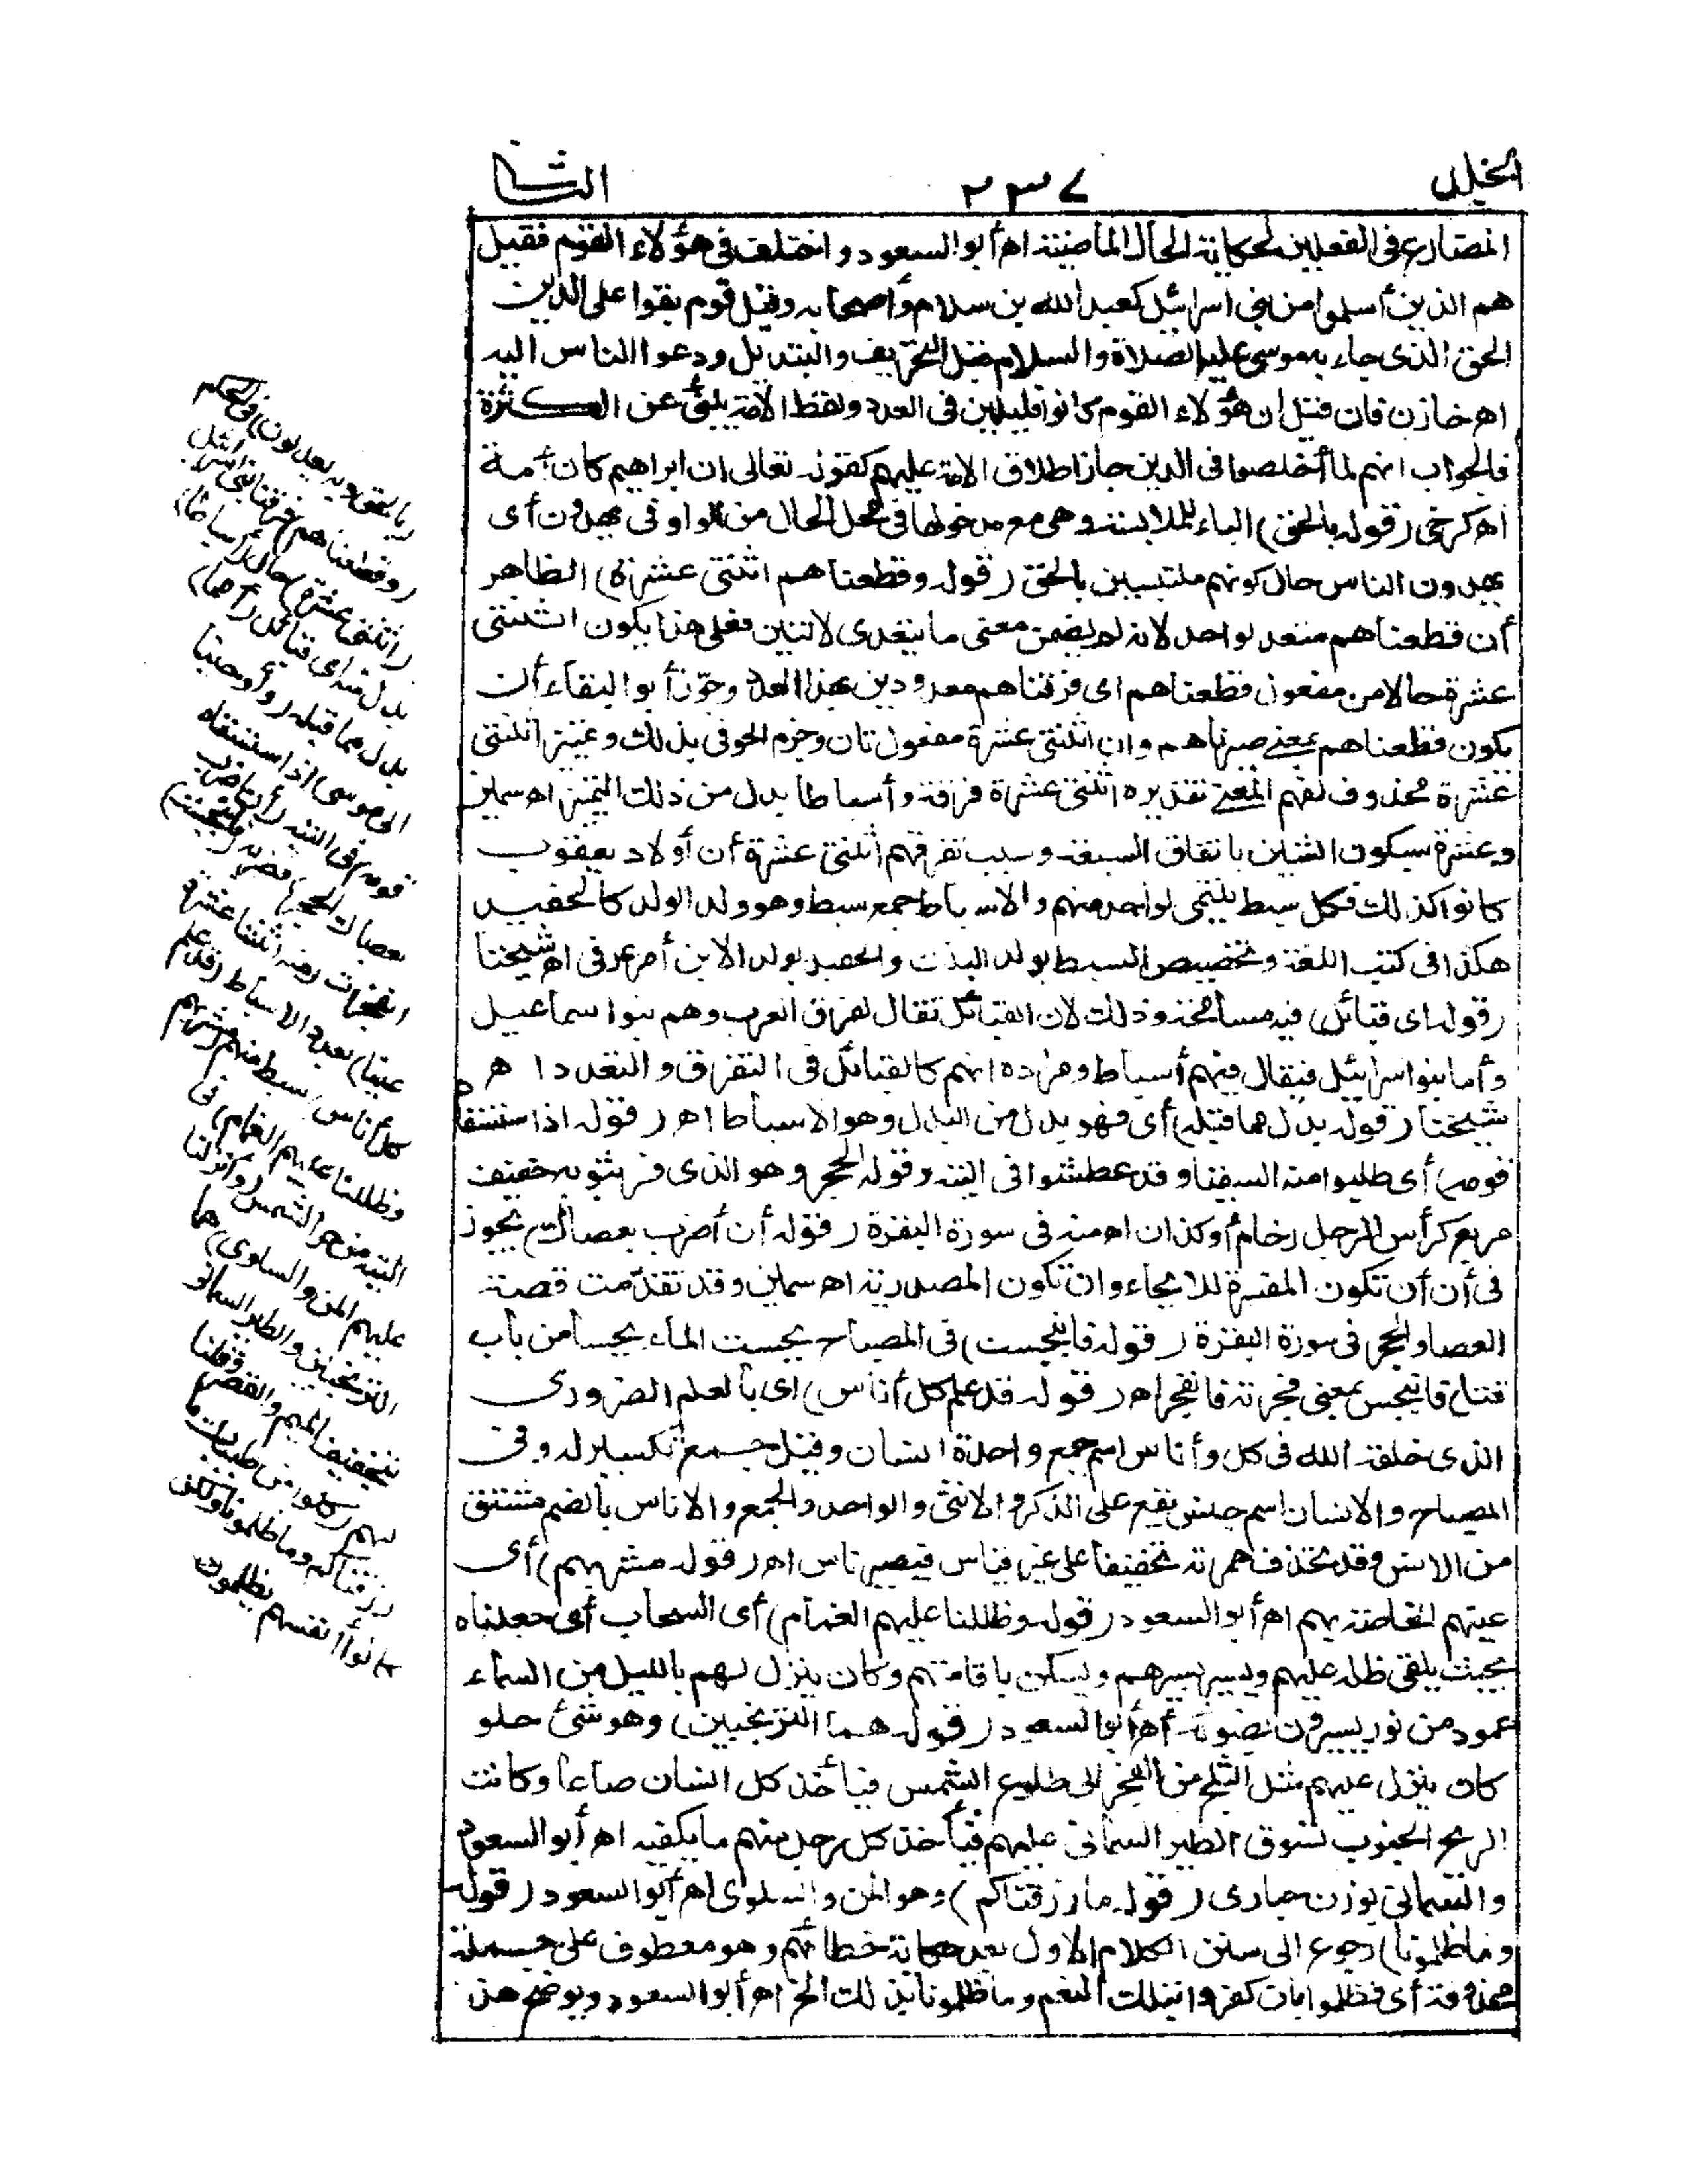 الجلد
٢٣٧
الثانى
المضارع فى الفعلين لحكاية الحال الماضية اه أبو السعود واختلف فى هؤلاء القوم فقيل
هم الذين أسلموا من بنى اسرائيل كعبد الله بن سلام وأصحابه وقيل قوم بقوا على الدين
الحق الذى جاء به موسى عليه الصلاة والسلام قبل التحريف والتبديل ودعوا الناس اليه
اه خازن فان قيل ان هؤلاء القوم كانوا قليلين فى العدد ولفظ الأمة ينبئ عن الكثرة
فالجواب انهم لما أخلصوا فى الدين جاز اطلاق الامة عليهم كقوله تعالى ان ابراهيم كان أمة
اه كرخى (قوله بالحق) الباء للملابسة وهى مع مدخولها فى محل الحال من الواو فى يهدون أى
يهدون الناس حال كونهم ملتبسين بالحق (قوله وقطعناهم اثنتى عشرة) الظاهر
أن قطعناهم متعد لواحد لانه لم يضمن معنى ما يتعدى لاثنين فعلى هذا يكون اثنتى
عشرة حالا من مفعول قطعناهم اى فرقناهم معدودين بهذا العدد وجوّز أبو البقاء أن
يكون قطعناهم بمعنى صيرناهم وان اثنتى عشرة مفعول ثان وجزم الحوفى بذلك وتمييز اثنتى
عشرة محذوف لفهم المعنى تقديره اثنتى عشرة فرقة وأسباطا بدل من ذلك التمييز اه سمين
وعشرة بسكون الشين باتفاق السبعة وسبب تفرقهم اثنتى عشرة أن أولاد يعقوب
كانوا كذلك فكل سبط ينتمى لواحد منهم والاسباط جمع سبط وهو ولد الولد كالحفيد
هكذا فى كتب اللغة وتخصيص السبط بولد البنت والحفيد بولد الابن أمر عرفى اه شيخنا
(قوله اى قبائل) فيه مسامحة وذلك لان القبائل تقال لفرق العرب وهم بنوا سماعيل
وأما بنوا سرائيل فيقال فيهم أسباط ومراده انهم كالقبائل فى التفرق والتعدد ا ه
شيخنا (قوله بدل مما قبله) أى فهو بدل من البدل وهو الاسباط اه (قوله اذا ستسقاه
قومه) أى طلبوا منه السقيا وقد عطشوا فى التيه وقوله الحجر وهو الذى فر بثوبه خفيف
مربع كرأس الرجل رخام أو كذان اه منه فى سورة البقرة (قوله أن أضرب بعصاك) يجوز
فى أن أن تكون المفسرة للايحاء وان تكون المصدرية اه سمين وقد تقدّمت قصة
العصا والحجر فى سورة البقرة (قوله فانبجست) فى المصباح بجست الماء بجسا من باب
قتل فانبجس بمعنى فجرته فانفجر اه (قوله قد علم كل أناس) اى بالعلم الضرورى
الذى خلقه الله فى كل وأناس اسم جمع واحدة انسان وقيل جمع تكسير له وفى
المصباح والانسان اسم جنس يقع على الذكر والانثى والواحد والجمع والاناس بالضم مشتق
من الانس وقد تحذف همزته تخفيفا على غير قياس فيصير ناس اه (قوله مشربهم) أى
عينهم الخاصة بهم اه أبو السعود (قوله وظللنا عليهم الغمام) أى السحاب أى جعلناه
بحيث يلقى ظله عليهم ويسير بسيرهم ويسكن باقامتهم وكان ينزل لهم بالليل من السماء
عمود من نور يسيرون بضوئه اه أبو السعود (قوله هما الترنجبين) وهو شئ حلو
كان ينزل عليهم مثل الثلج من الفجر الى طلوع الشمس فيأخذ كل انسان صاعا وكانت
الريح الجنوب تسوق الطير السمانى عليهم فيأخذ كل رجل منهم ما يكفيه اه أبو السعود
والسمانى بوزن حبارى (قوله ما رزقناكم) وهو المن والسلوى اه أبو السعود (قوله
وما ظلمونا) رجوع الى سنن الكلام الاول بعد حكاية خطابهم وهو معطوف على جملة
محذوفة أى فظلموا بان كفروا بتلك النعم وما ظلمونا بذلك الخ اه أبو السعود ويوضح هذا
بالحق وبه يعدلون) فى الحكم
(وقطعناهم) فرقنا بنى اسرائيل
(اثنتى عشرة) حال (أسباطا)
بدل منه اى قبائل (أمما)
بدل مما قبله (وأوحينا
الى موسى اذ استسقاه
قومه) فى التيه (أن اضرب
بعصاك الحجر) فضربه (فانبجست)
انفجرت (منه اثنتا عشرة
عينا) بعدد الاسباط (قد علم
كل أناس) سبط منهم (مشربهم
وظللنا عليهم الغمام) فى
التيه من حر الشمس (وأنزلنا
عليهم المن والسلوى) هما
الترنجبين والطير السمانى
بتخفيف الميم والقصر وقلنا
لهم (كلوا من طيبات ما
رزقناكم وما ظلمونا ولكن
كانوا أنفسهم يظلمون